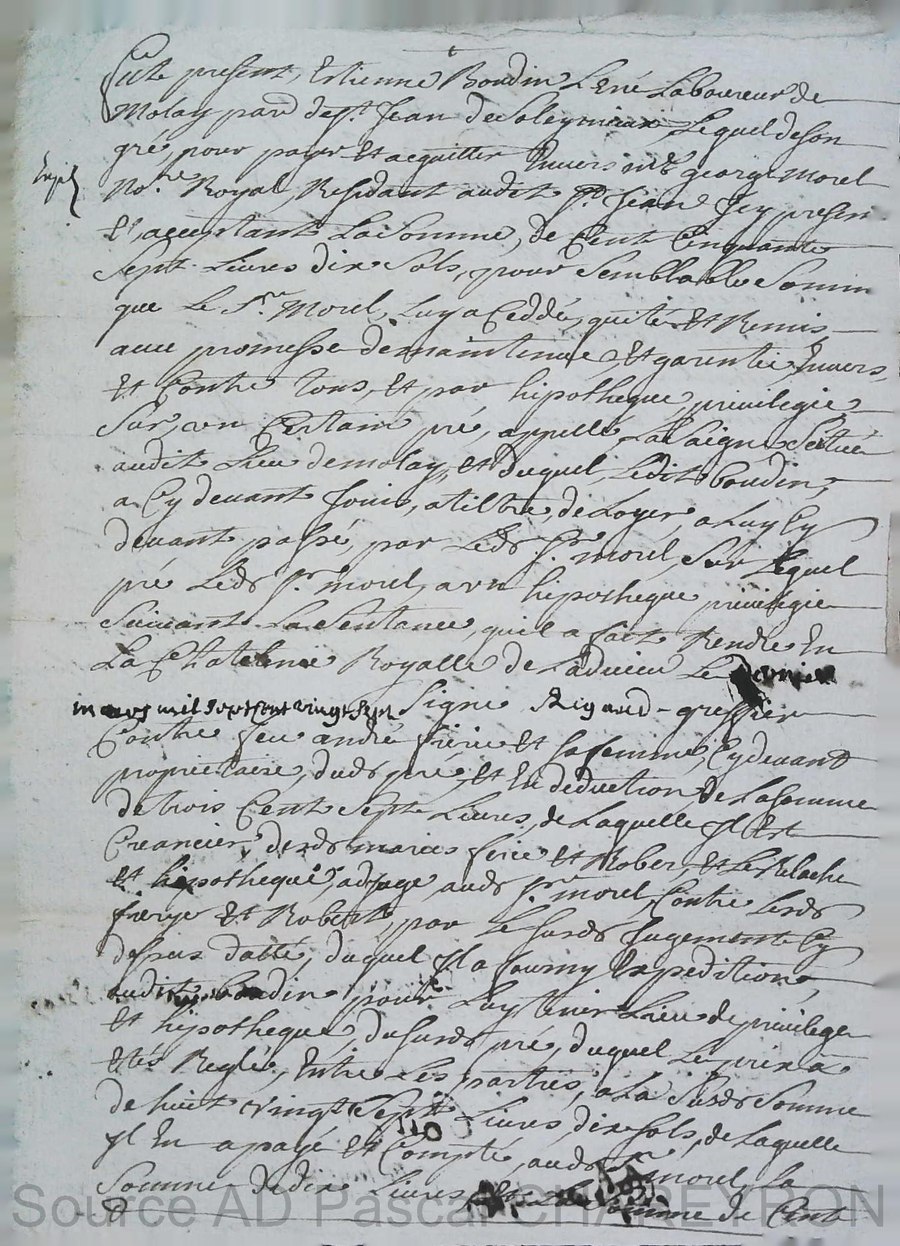 Fut present, Estienne Boudin Lené Laboureur de
Molay par. de st. Jean de Soleymieux Lequel de son
gré, pour payer Et acquitter Envers me george Morel
Expe
No.re Royal Residant audit st Jean Jcy presen
Et, acceptant La Somme, de Cent Cinquante
Sept Livres dix Sols, pour Semblable Somm
que Le Sr. Morel, Luy a Ceddé, quité Et Remis
avec promesse de maintenue, Et garentie Envers,
Et Contre tous, Et par hipotheque, privilegie
Sur, un Certain pré, appellé La Saigne Scitué
audit Lieu de molay, Et duquel, Ledit boudin,
a Cy devant Jouis, a tiltre, de Loyer, a Luy Cy
devant passé, par Leds Sr. morel, Sur Lequel
pré Leds Sr. morel, a vn hipotheque privilegie
Suivant La Sentance, quil a fait Rendre En
La Chatelnie Royalle de Lavieu Le dernier
mars mil sept cent vingt sept Signe Rigaud greffier
Contre feu andré frerie Et sa femme, Cydevant
proprietaire, duds pré, Et En deduction, de La somme
de trois Cent Sept Livres, de Laquelle Jl Est
Creancier, desds mariés ferie Et Rober, Et Le Relache
Et hipotheque, adjugé auds Sr. morel, Contre Lesds
frerye Et Robert, par Le susds Jugement Cy
dessus datté, duquel Jl a fourny Expedition,
audit boudin pour Luy tenir Lieu de privilege
Et hipotheque, du susds pré, duquel Le prix a
Etés Reglé, Entre Les parties, a La Susds Somme
de huit vingt Sept Livres, dix sols, de Laquelle
110
Jl En a payé Et Compté, auds Sr morel, La
Somme de dix Livres, Somme de Cent
Source AD Pascal CHAREYRON